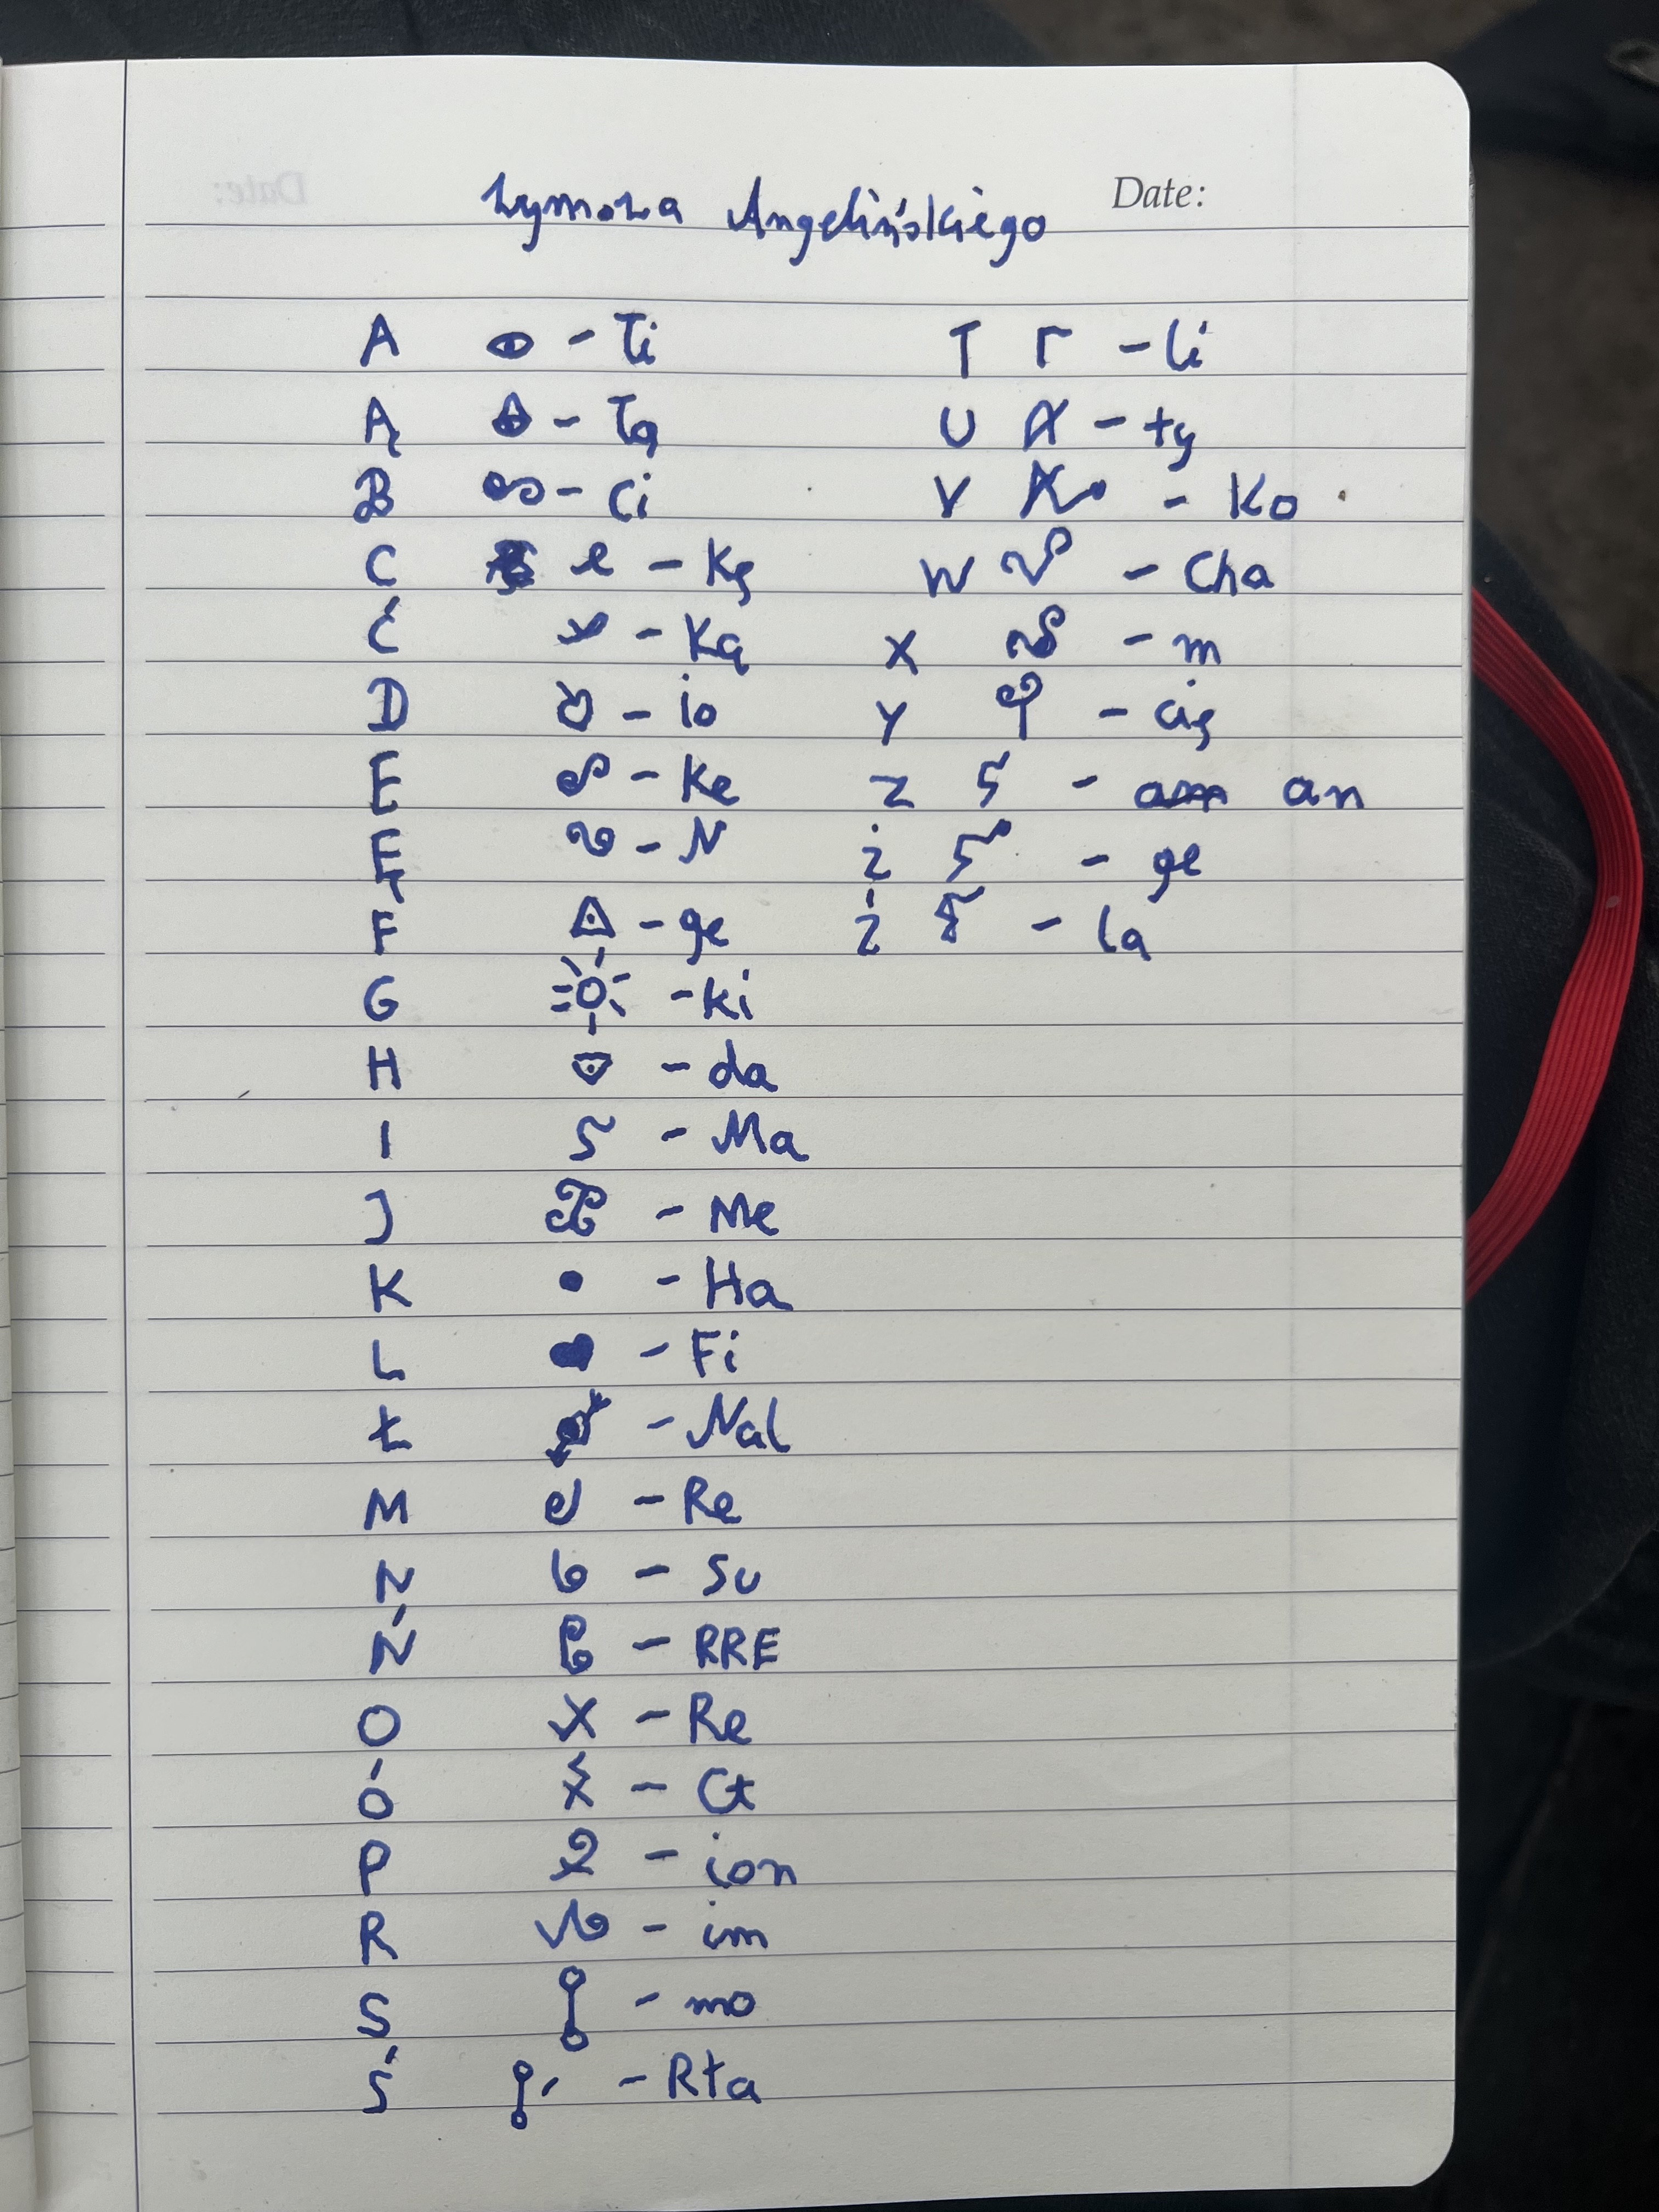 Angelińskiego Date:
A - Ti T - li
Ą - Tą U - ty
B - Ci V - Ko
C - Kę W - Cha
Ć - Ką X - m
D - io Y - cię
E - Ke Z - an
Ę - N Ż - ge
F - ge Ź - la
G - ki
H - da
I - Ma
J - Me
K - Ha
L - Fi
Ł - Nal
M - Re
N - Su
Ń - RRE
O - Re
Ó - Ct
P - ion
R - im
S - mo
Ś - Rta